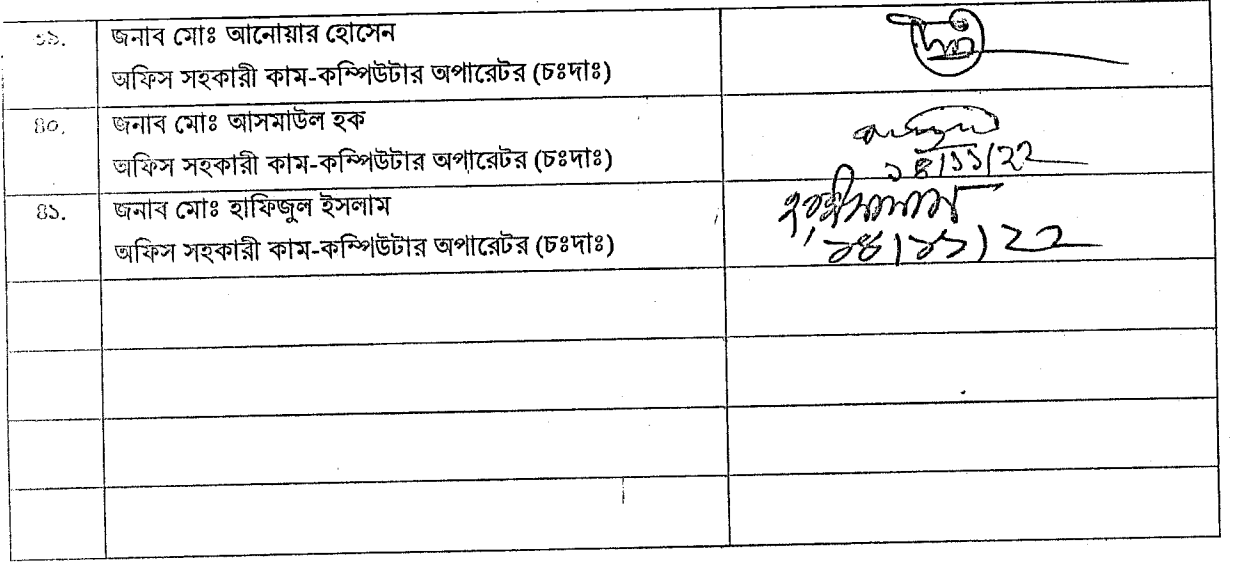 ৩৯.
জনাব মোঃ আনোয়ার হোসেন
অফিস সহকারী কাম-কম্পিউটার অপারেটর (চঃদাঃ)
৪০.
জনাব মোঃ আসমাউল হক
অফিস সহকারী কাম-কম্পিউটার অপারেটর (চঃদাঃ)
১৪/১১/২২
৪১.
জনাব মোঃ হাফিজুল ইসলাম
অফিস সহকারী কাম-কম্পিউটার অপারেটর (চঃদাঃ)
১৪/১১/২২